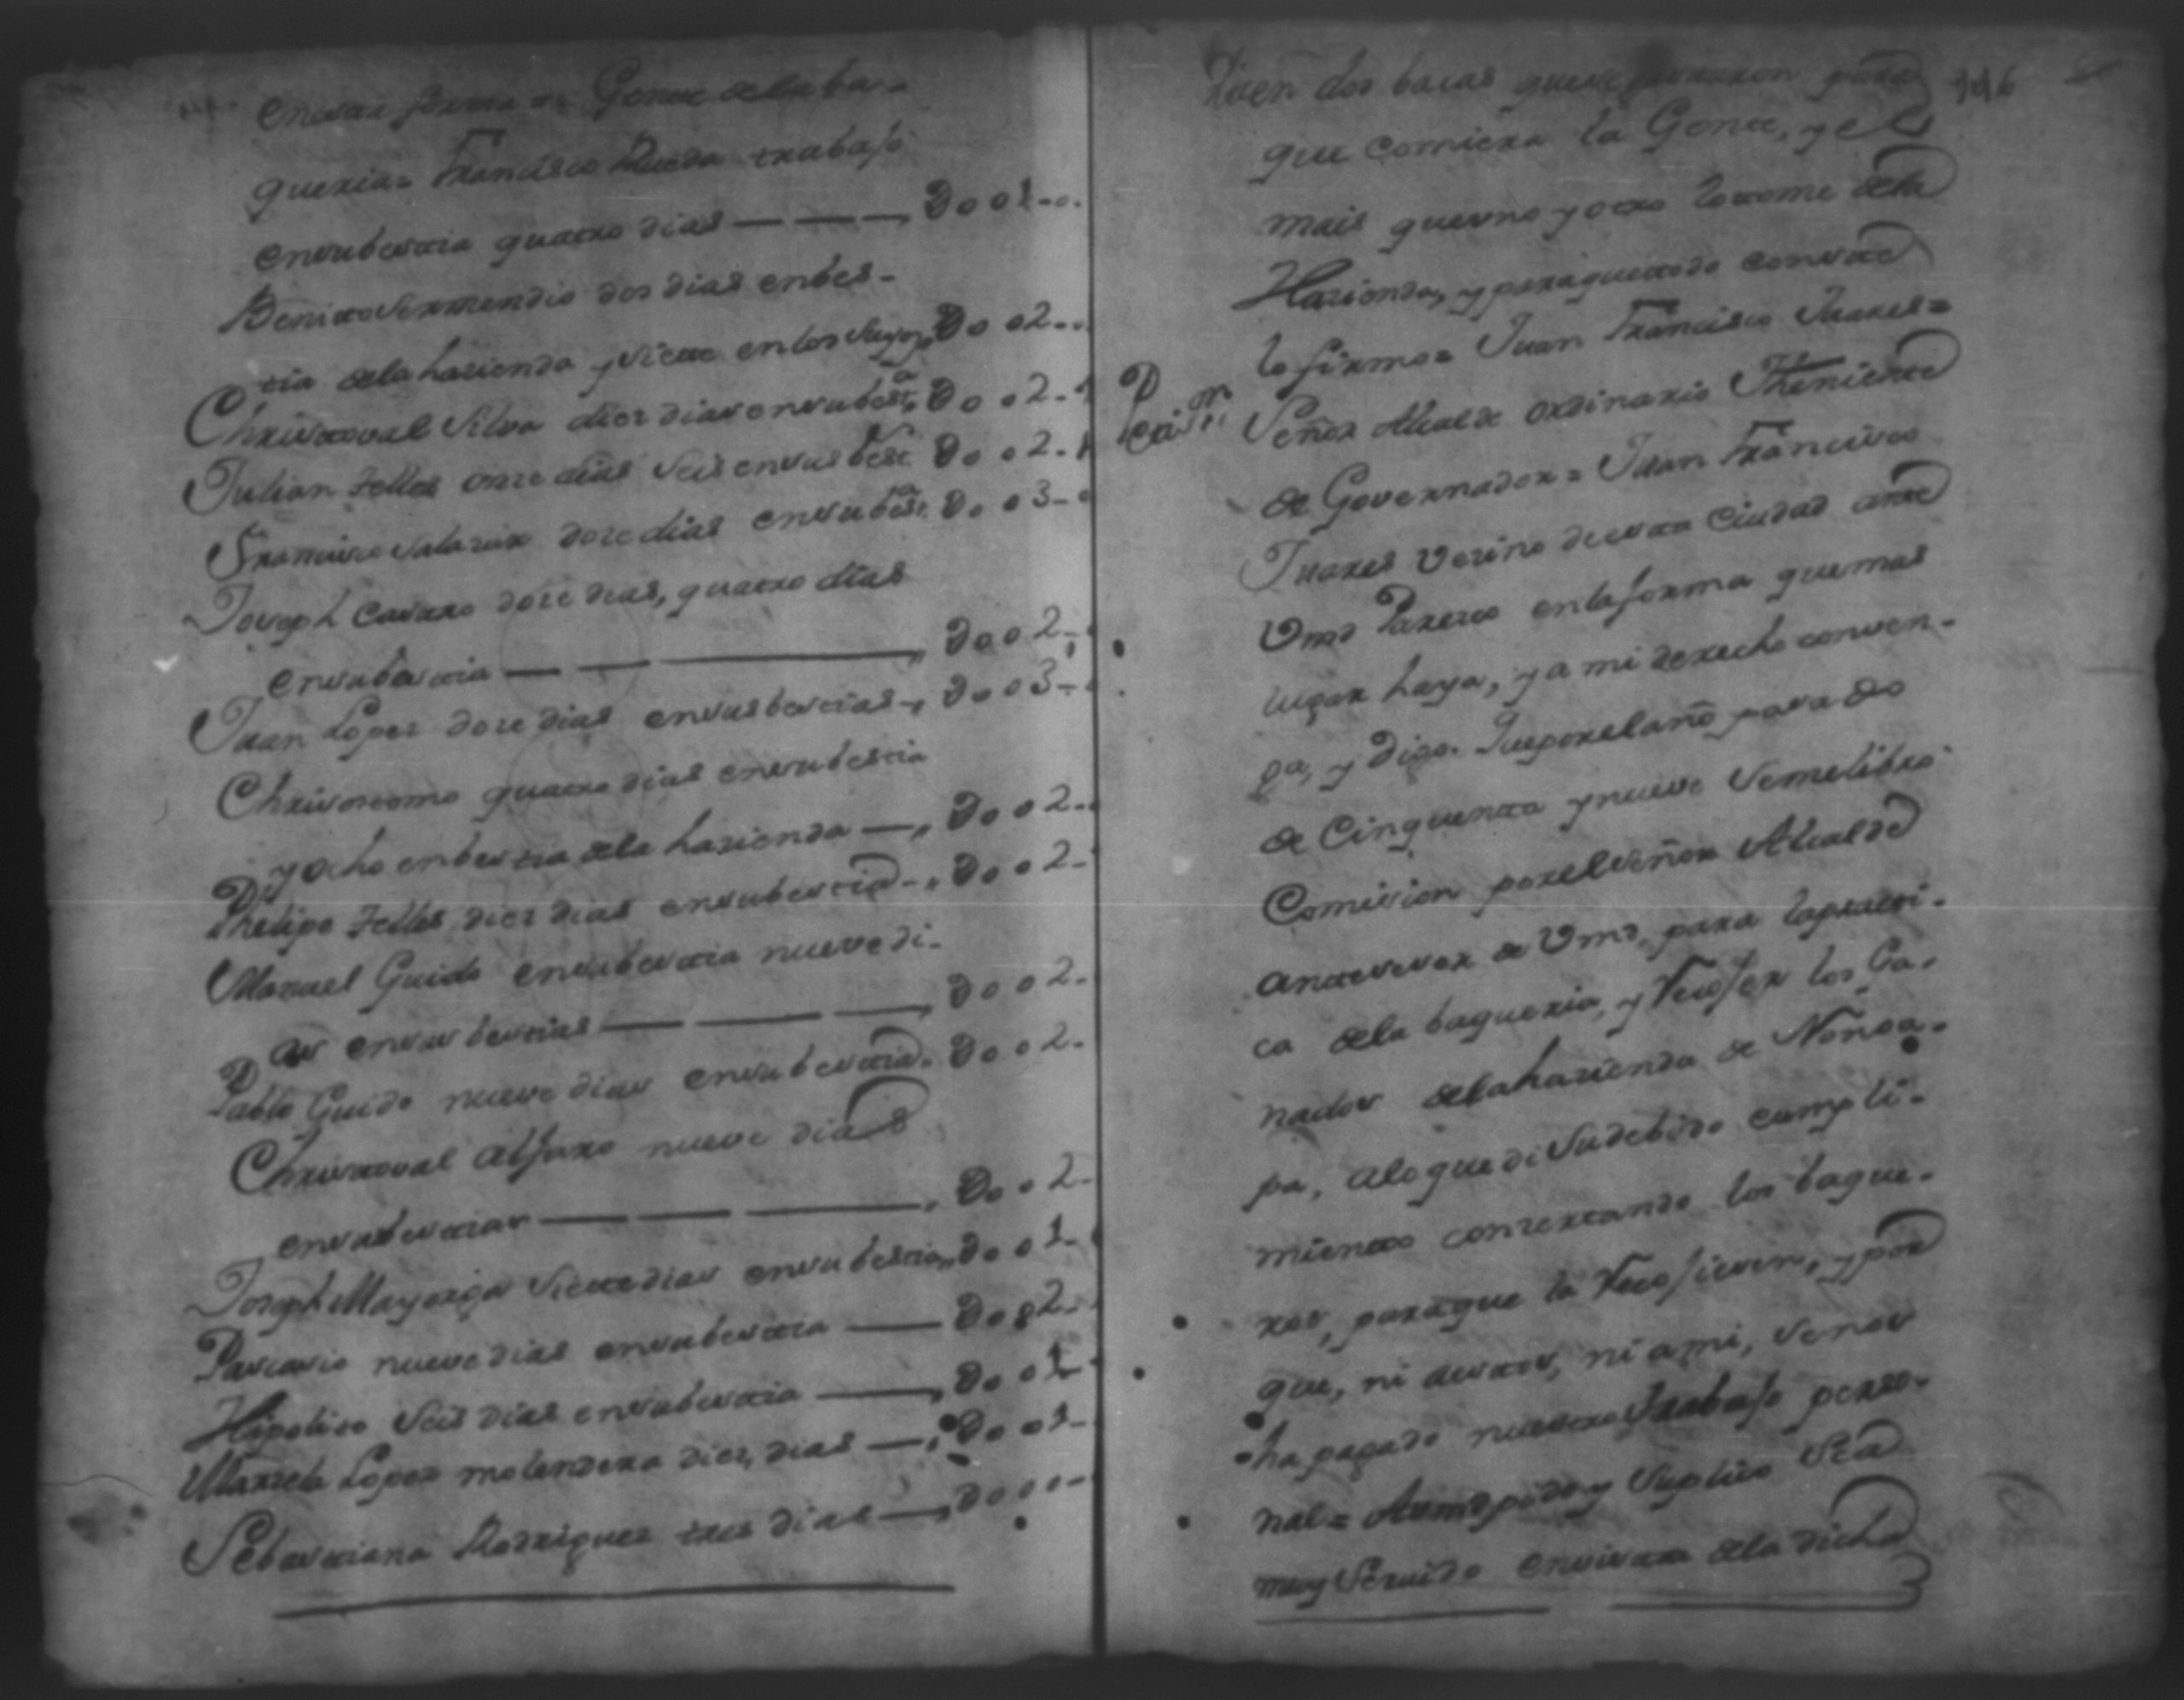 en esta forma = Gente de la ba-
queria = Francisco Rueda trabajo
en su bestia quatro dias — — — D 001-0.
Benito Sermendio dos dias en bes-
tia de la hazienda y siete en los suyos, D 002-
Christoval Silva diez dias en su besta. D 002-
Julian Telles onze dias seis en sus best D 002-
Francisco Salazar doze dias en su besta. D 003-
Joseph Castro doze dias, quatro dias
en su bestia — — — D 002-
Juan Lopez doze dias en sus bestias -, D 003-
Chrisostomo quatro dias en su bestia
y ocho en bestia de la hazienda —, D 002-
Phelipe Telles diez dias en su bestia -, D 002-
Manuel Guido en su bestia nueve di-
as en sus bestias — — —, D 002-
Pablo Guido nueve dias en su bestia. D 002-
Christoval Alfaro nueve dias
en su bestias — — —, D 002-
Joseph Mayorga siete dias en su bestia, D 001-
Pascasio nueve dias en su bestia — D 002-
Hipolito seis dias en su bestia —, D 001-
Marzela Lopez molendera diez dias —, D 001-
Sebastiana Rodriguez tres dias —, D 000-
146
Iten dos bacas que se para
que comiera la Gente, y el
mais que uno y otro lo tome de la
Hazienda, y para que todo conste
lo firmo = Juan Francisco Juares =
Petizon
Señor Alcalde ordinario Theniente
de Governador = Juan Francisco
Juares Vezino de esta Ciudad ante
Vmd Paresco en la forma que mas
lugar haya, y a mi derecho conven-
ga, y Digo. Que por el año pasado
de Cinquenta y nueve se me libro
Comision por el Señor Alcalde
antesesor de Vmd, para la practi-
ca de la baqueria, y Recoser los Ga-
nados de la hazienda de Nonoa-
pa, a lo que di su debido cumpli-
miento consertando los baque-
ros, para que lo Recosiesen, y por
que, ni a estos, ni a mi, se nos
ha pagado nuestro trabajo perso-
nal = A vmd pido y suplico sea
muy Servido en vista de la dicha